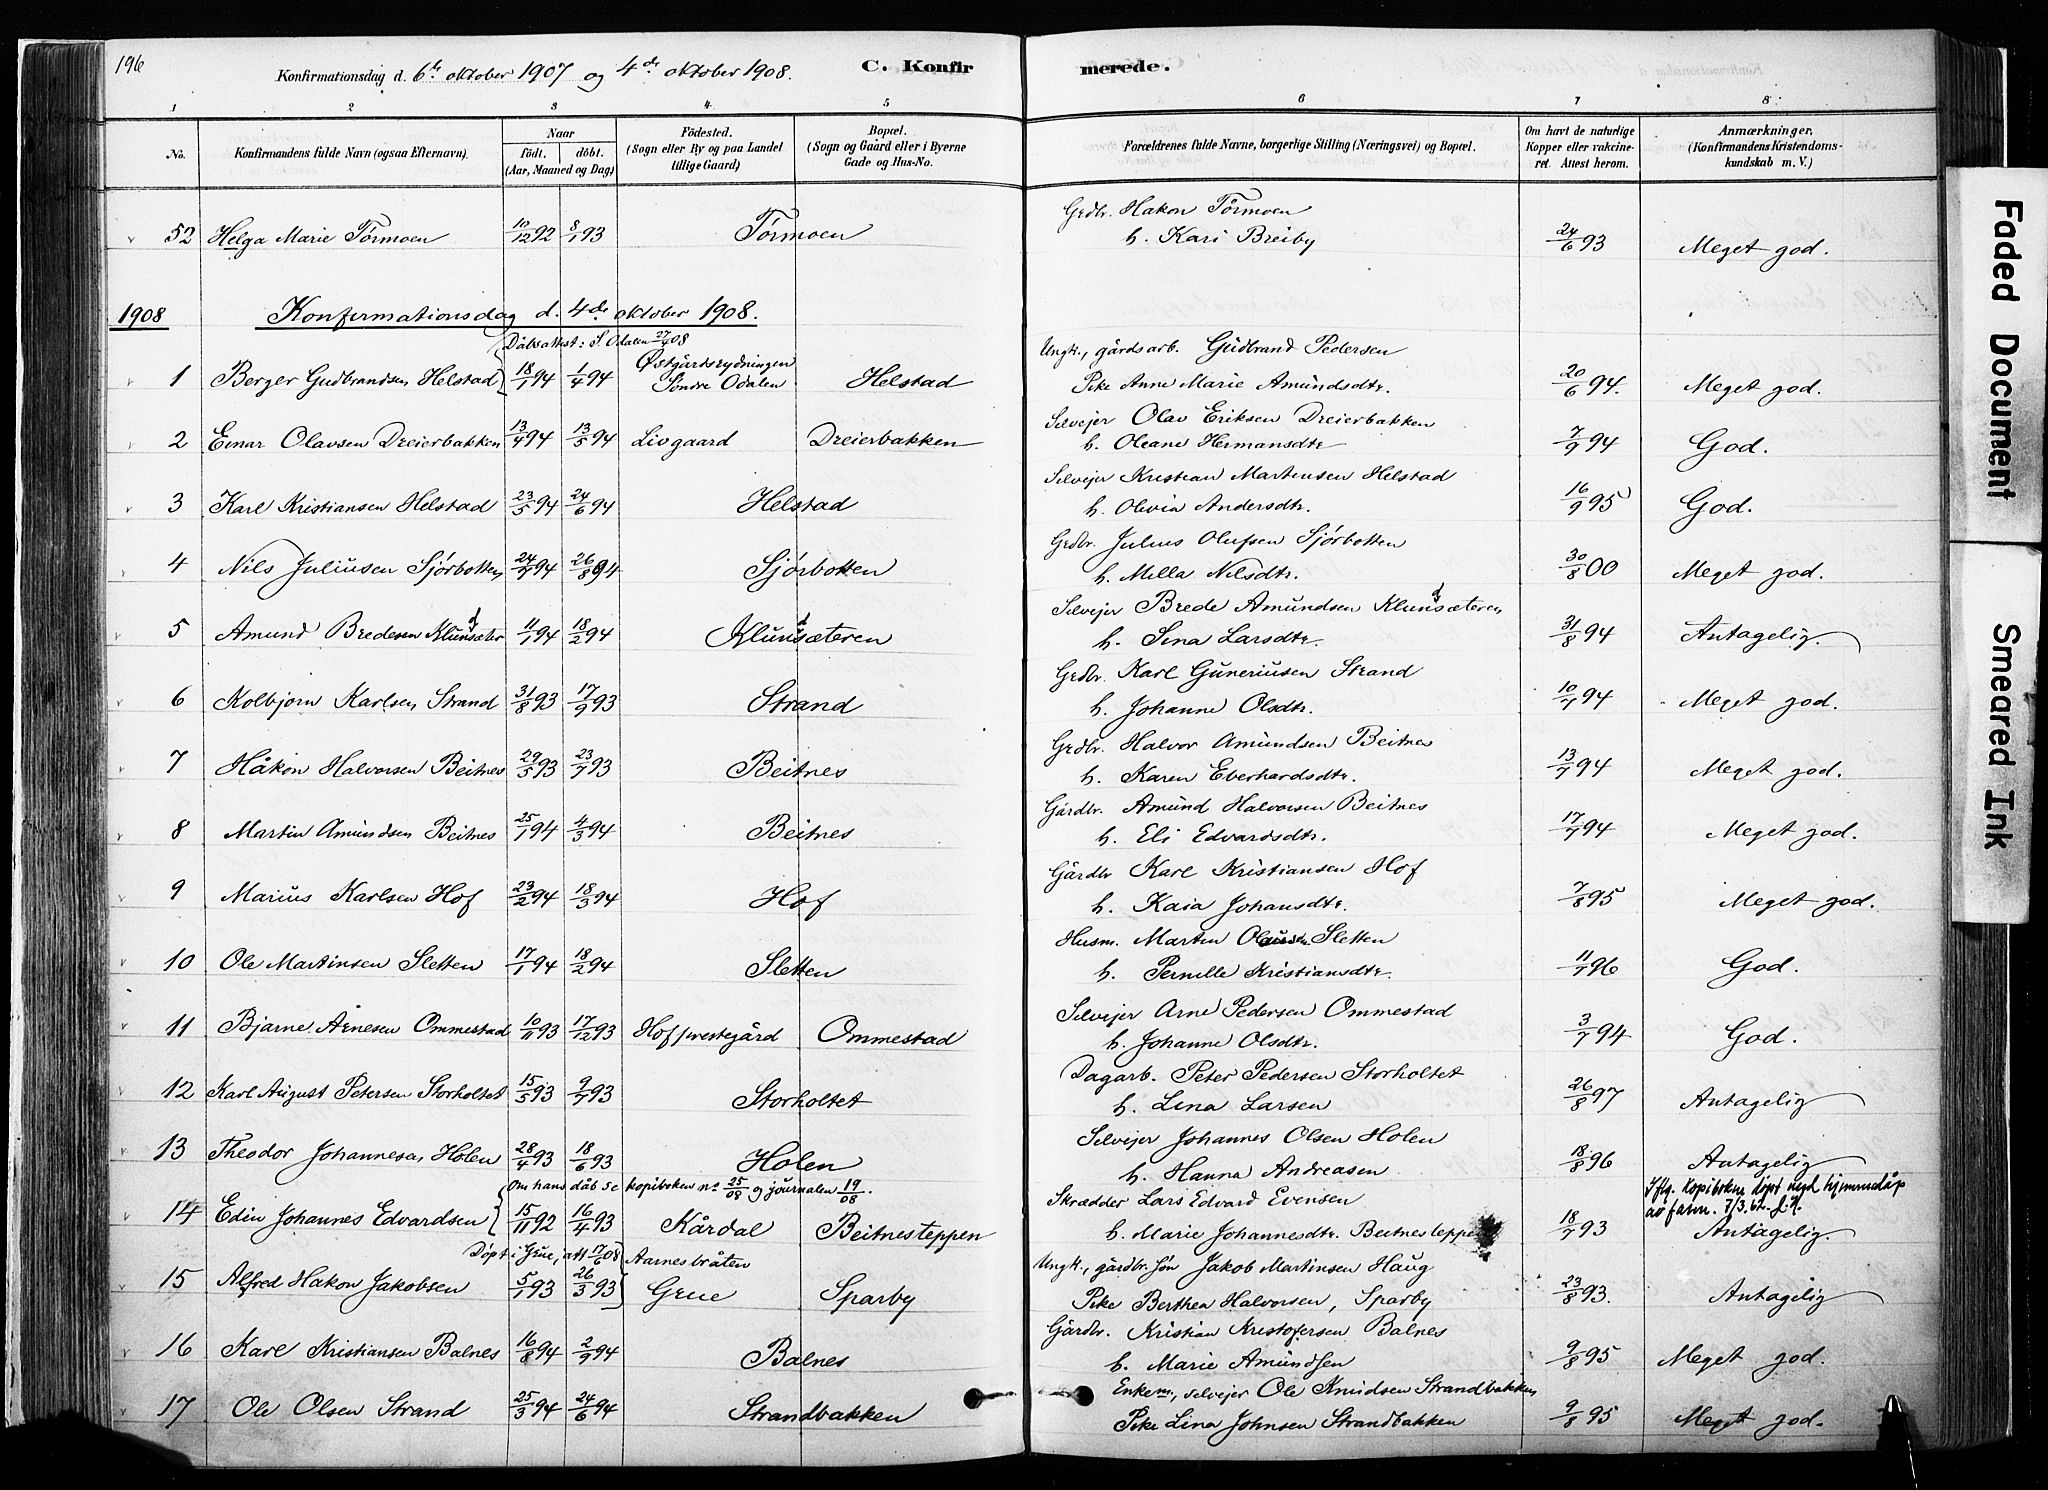 196
Konfirmationsdag d. 6te oktober 1907 og 4de oktober 1908. C. Konfirmerede.
1 2 3 4 5 6 7 8
No. Konfirmandens fulde Navn (ogsaa Efternavn). Naar Födt. döbt. (Aar, Maaned og Dag) Födested. (Sogn eller By og paa Landet tillige Gaard) Bopæl. (Sogn og Gaard eller i Byerne Gade og Hus-No. Forældrenes fulde Navne, borgerlige Stilling (Næringsvei) og Bopæl. Om havt de naturlige Kopper eller vakcineret. Attest herom. Anmærkninger. (Konfirmandens Kristendomskundskab m. V.)
Grdbr. Hakon Tørmoen
52 Helga Marie Tørmoen 10/12 92 8/1 93 Tørmoen h. Kari Breiby 24/6 93 Meget god.
1908 Konfirmationsdag d. 4de oktober 1908.
Dåbsattest: S. Odalen 27/9 08
Østgårdsrydningen Ungk., gårdsarb. Gudbrand Pedersen
1 Berger Gudbrandsen Helstad 18/1 94 1/4 94 Söndre Odalen Helstad Pike Anne Marie Amundsdtr. 20/6 94. Meget god.
Selvejer Olav Eriksen Dreierbakken
2 Einar Olavsen Dreierbakken 13/4 94 13/5 94 Livgaard Dreierbakken h. Oleane Hermansdtr 7/9 94 God.
Selvejer Kristian Martinsen Helstad
3 Karl Kristiansen Helstad 23/5 94 24/6 94 Helstad h. Olivia Andersdtr. 16/9 95 God.
Grdbr. Julius Olufsen Sjørbotten
4 Nils Juliusen Sjørbotten 24/7 94 26/8 94 Sjørbotten h. Milla Nilsdtr. 30/8 00 Meget god.
Selvejer Brede Amundsen Klundsæteren
5 Amund Bredesen Klundsæter 11/1 94 18/2 94 Klundsæteren h. Sina Larsdtr. 31/8 94 Antagelig.
Grdbr. Karl Guneriusen Strand
6 Kolbjørn Karlsen Strand 31/8 93 17/9 93 Strand h. Johanne Olsdtr. 10/7 94 Meget god.
Grdbr. Halvor Amundsen Beitnes
7 Håkon Halvorsen Beitnes 29/5 93 23/7 93 Beitnes h. Karen Eberhardsdtr. 13/7 94 Meget god.
Gårdbr. Amund Halvorsen Beitnes
8 Martin Amundsen Beitnes 25/1 94 4/3 94 Beitnes h. Eli Edvardsdtr. 17/7 94 Meget god.
Gårdbr Karl Kristiansen Hof
9 Marius Karlsen Hof 23/2 94 18/3 94 Hof h. Kaia Johansdtr. 7/8 95 Meget god.
Husm. Martin Sletten
10 Ole Martinsen Sletten 17/1 94 18/2 94 Sletten h. Pernille Kristiansdtr. 11/7 96 God.
Selvejer Arne Pedersen Ommestad
11 Bjarne Arnesen Ommestad 10/11 93 17/12 93 Hof prestegård Ommestad h. Johanne Olsdtr. 3/7 94 God.
Dagarb. Peter Pedersen Storholtet
12 Karl August Petersen Storholtet 15/5 93 9/7 93 Storholtet h. Lina Larsen 26/8 97 Antagelig
Selvejer Johannes Olsen Holen
13 Theodor Johannesen Holen 28/4 93 18/6 93 Holen h. Hanna Andreasen 18/8 96 Antagelig
Om hans dåb se kopiboken no 25/08 og journalen 19/08. Skrædder Lars Edvard Evensen Iflg. kopibokene döpt ved hjemmedåp av faren. 7/3.62.
14 Edin Johannes Edvardsen 15/11 92 16/4 93 Kårdal Beitnesteppen h. Marie Johannesdtr. Beitnesteppen 18/7 93 Antagelig.
Döpt i Grue, att 17/6 08 Aarnesbråten Ungk., gårdbr. søn Jakob Martinsen Haug
15 Alfred Hakon Jakobsen 5/1 93 26/3 93 Grue Sparby Pike Berthea Halvorsen, Sparby 23/8 93. Antagelig
Gårdbr. Kristian Kristofersen Balnes
16 Karl Kristiansen Balnes 16/8 94 2/9 94 Balnes h. Marie Amundsen 9/8 95 Meget god.
Enkem., selvejer Ole Knudsen Strandbakken
17 Ole Olsen Strand 25/3 94 24/6 94 Strandbakken Pike Lina Johnsen Strandbakken 9/8 95 Meget god.
Faded Document
Smeared Ink